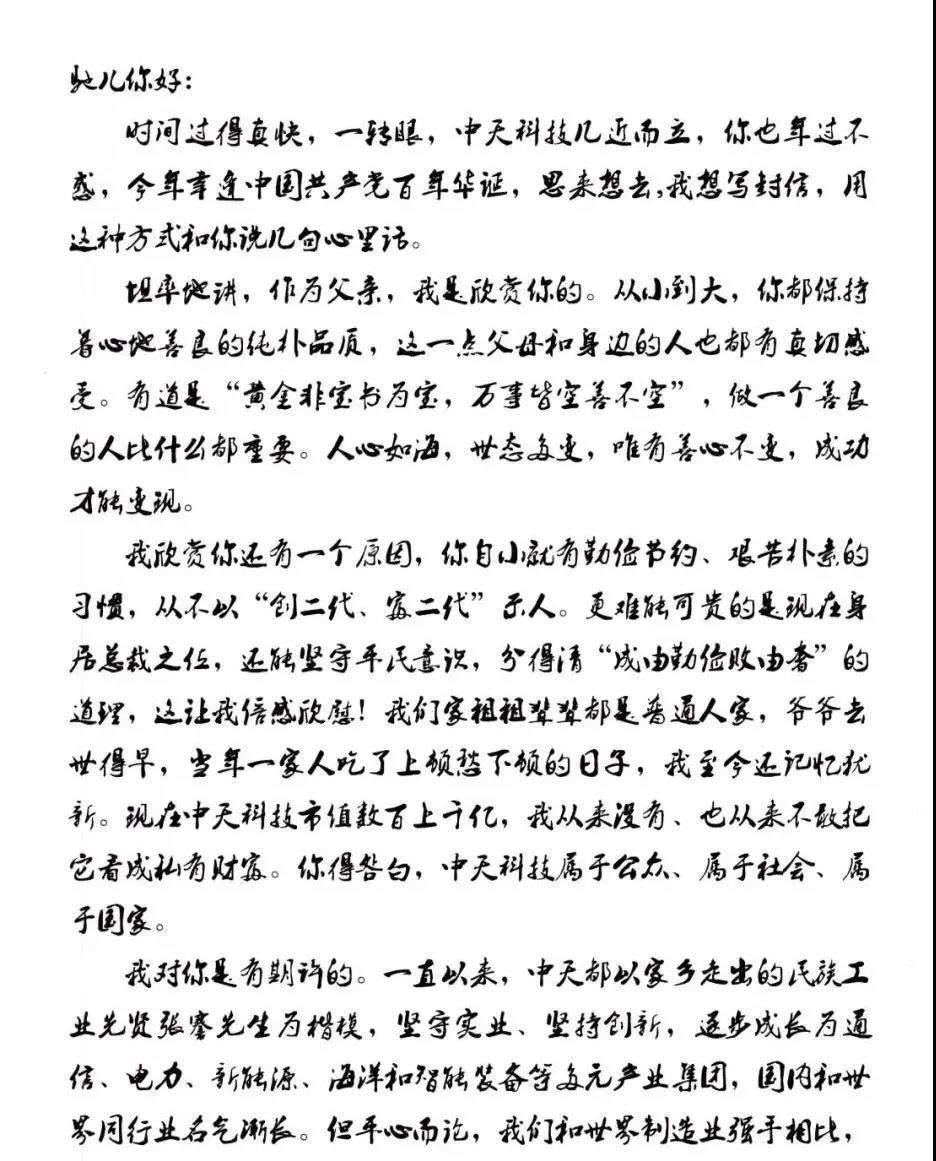 驰儿你好：
时间过得真快，一转眼，中天科技几近而立，你也年过不
惑，今年幸逢中国共产党百年华诞，思来想去，我想写封信，用
这种方式和你说几句心里话。
坦率地讲，作为父亲，我是欣赏你的。从小到大，你都保持
着心地善良的纯朴品质，这一点父母和身边的人也都有真切感
受。有道是“黄金非宝书为宝，万事皆空善不空”，做一个善良
的人比什么都重要。人心如海，世态多变，唯有善心不变，成功
才能变现。
我欣赏你还有一个原因，你自小就有勤俭节约、艰苦朴素的
习惯，从不以“创二代、富二代”示人。更难能可贵的是现在身
居总裁之位，还能坚守平民意识，分得清“成由勤俭败由奢”的
道理，这让我倍感欣慰！我们家祖祖辈辈都是普通人家，爷爷去
世得早，当年一家人吃了上顿愁下顿的日子，我至今还记忆犹
新。现在中天科技市值数百上千亿，我从来没有、也从来不敢把
它看成私有财富。你得明白，中天科技属于公众、属于社会、属
于国家。
我对你是有期许的。一直以来，中天都以家乡走出的民族工
业先贤张謇先生为楷模，坚守实业、坚持创新，逐步成长为通
信、电力、新能源、海洋和智能装备等多元产业集团，国内和世
界同行业名气渐长。但平心而论，我们和世界制造业强手相比，